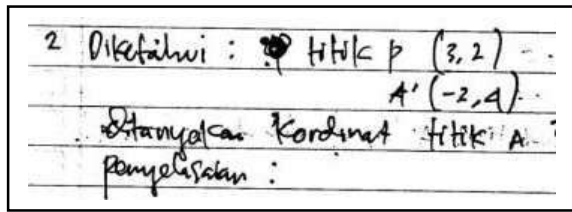 2 Diketahui : titik p (3,2)
A' (-2,4)
ditanyakan kordinat titik A ?
penyelasaian :